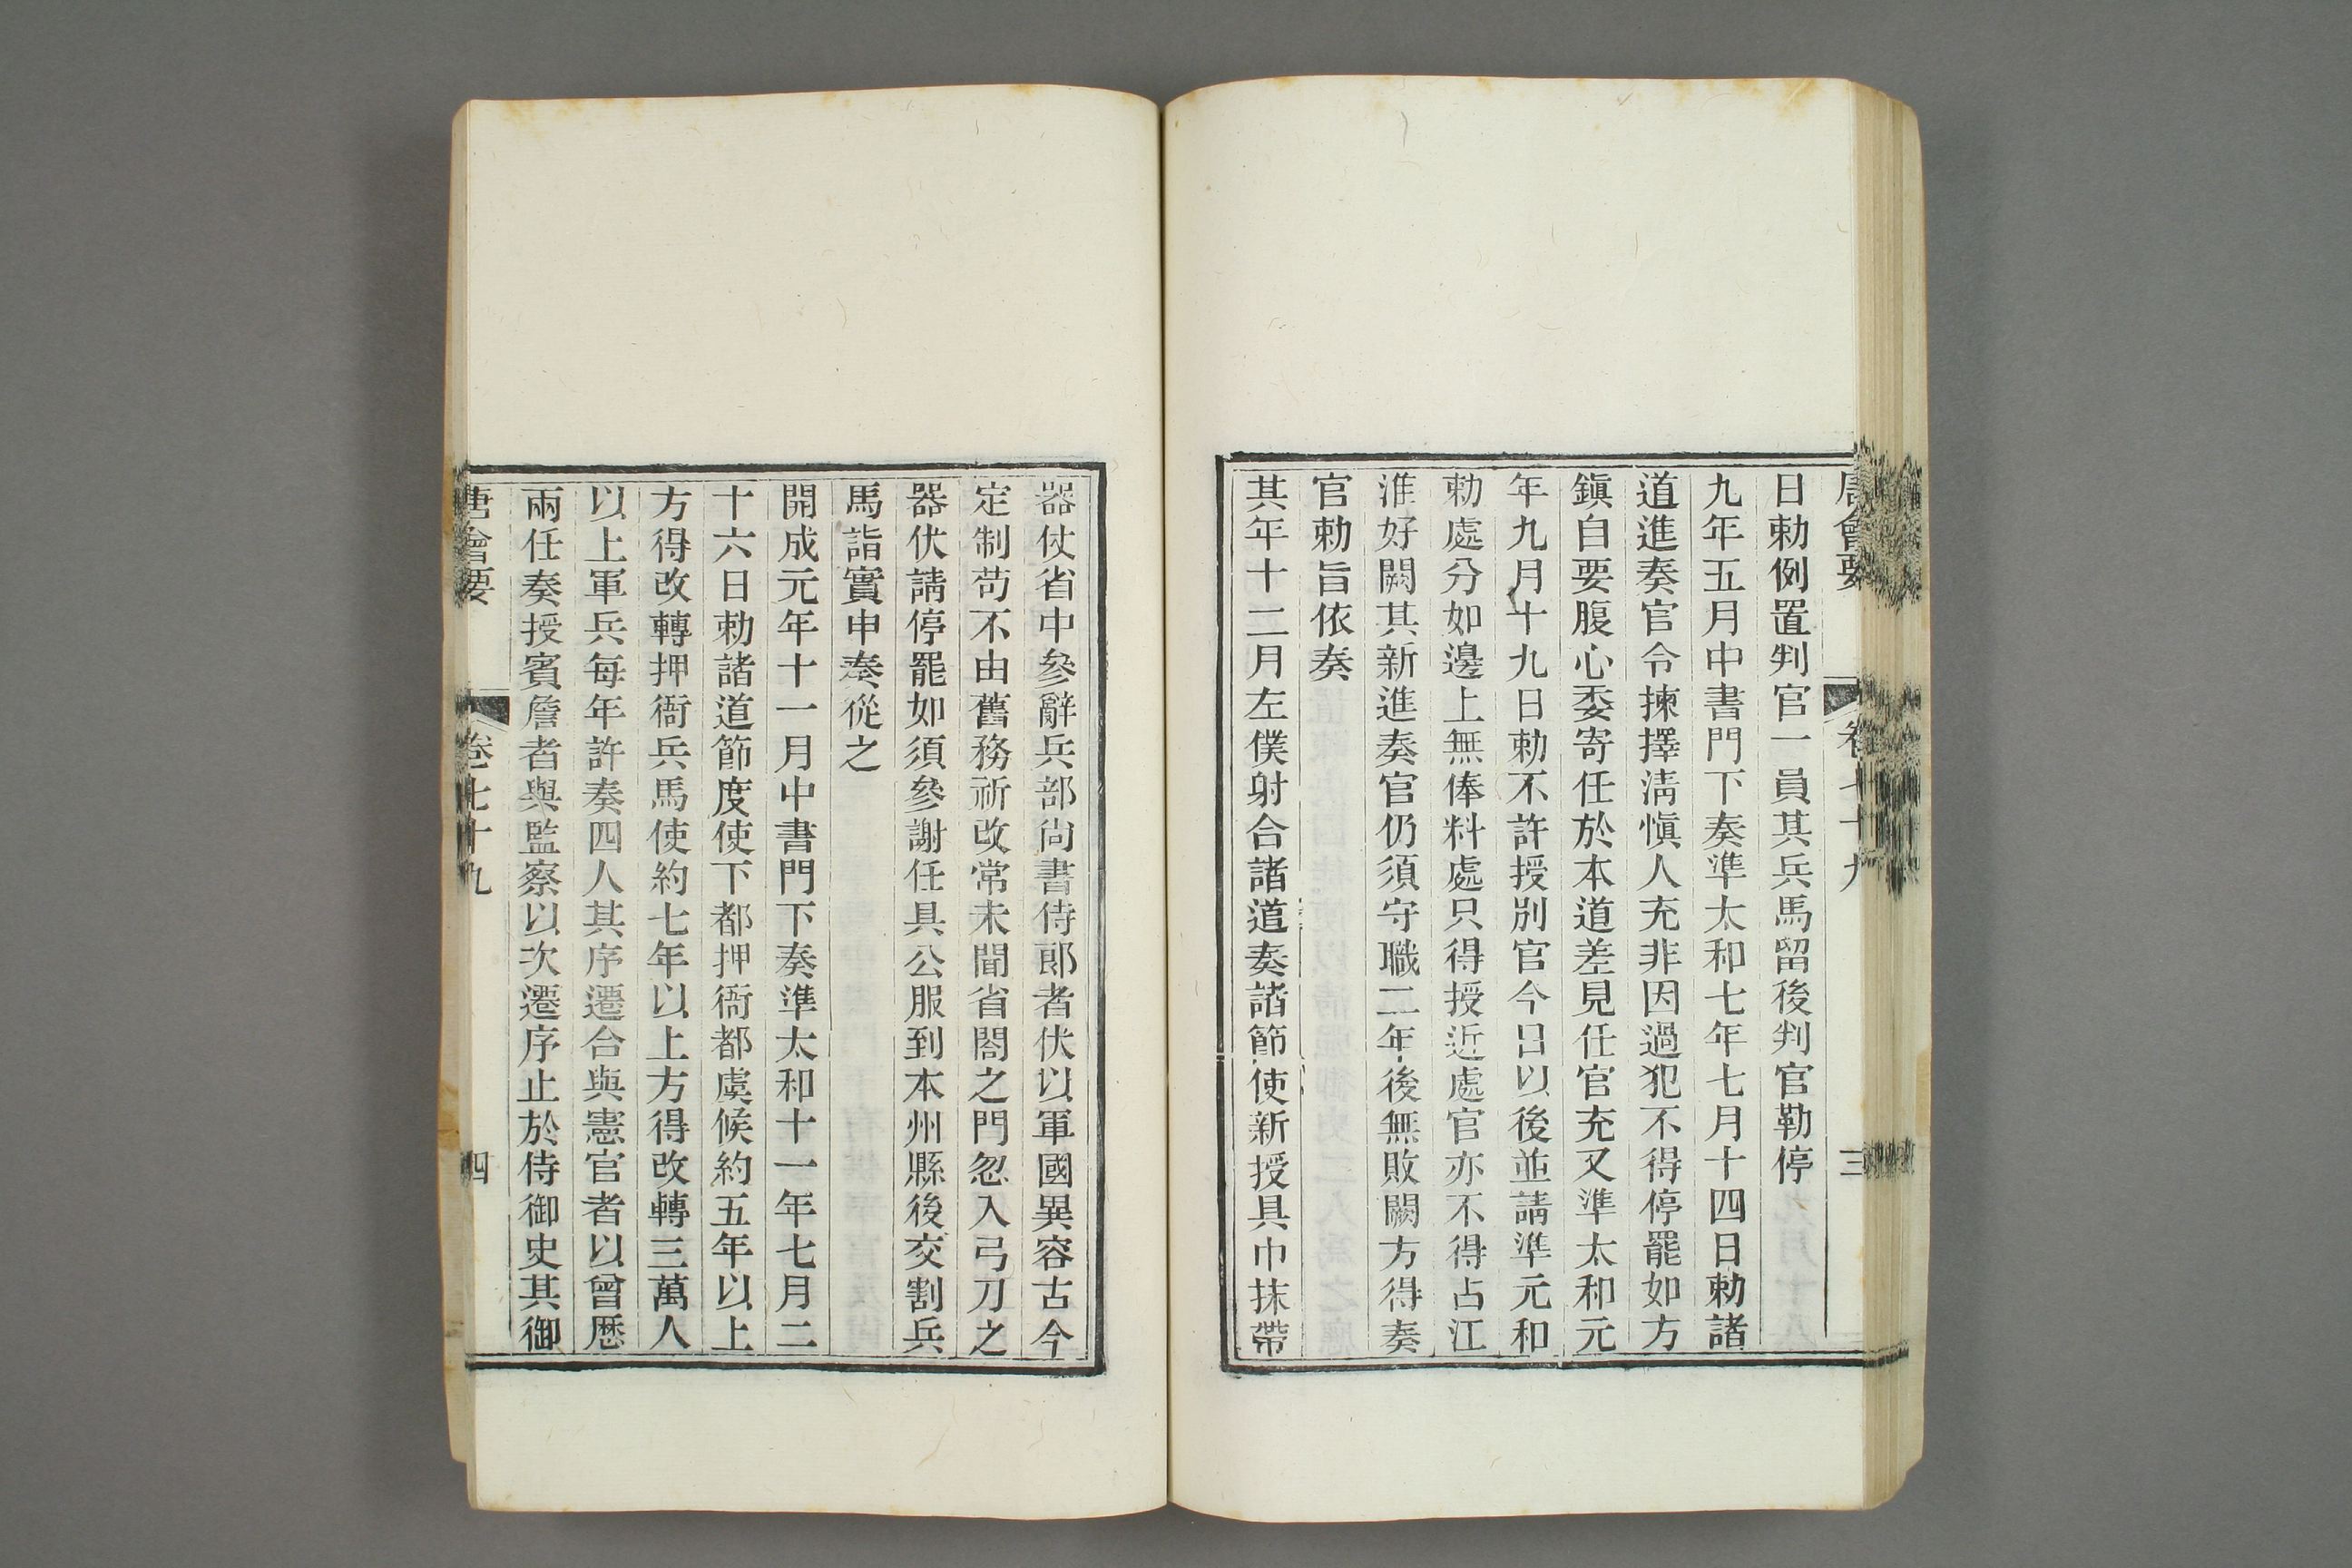 唐會要 卷七十九 三
日勅例置判官一員其兵馬留後判官勒停
九年五月中書門下奏準太和七年七月十四日勅諸
道進奏官令揀擇淸愼人充非因過犯不得停罷如方
鎭自要腹心委寄任於本道差見任官充又準太和元
年九月十九日勅不許授別官今日以後並請準元和
勅處分如邊上無俸料處只得授近處官亦不得占江
淮好闕其新進奏官仍須守職二年後無敗闕方得奏
官勅旨依奏
其年十二月左僕射合諸道奏諸節使新授具巾抹帶
器仗省中參辭兵部尙書侍郎者伏以軍國異容古今
定制苟不由舊務祈改常未聞省閤之門忽入弓刀之
器伏請停罷如須參謝任具公服到本州縣後交割兵
馬詣實申奏從之
開成元年十一月中書門下奏準太和十一年七月二
十六日勅諸道節度使下都押衙都虞候約五年以上
方得改轉押衙兵馬使約七年以上方得改轉三萬人
以上軍兵每年許奏四人其序遷合與憲官者以曾歷
兩任奏授賓詹者與監察以次遷序止於侍御史其御
唐會要 卷七十九 四